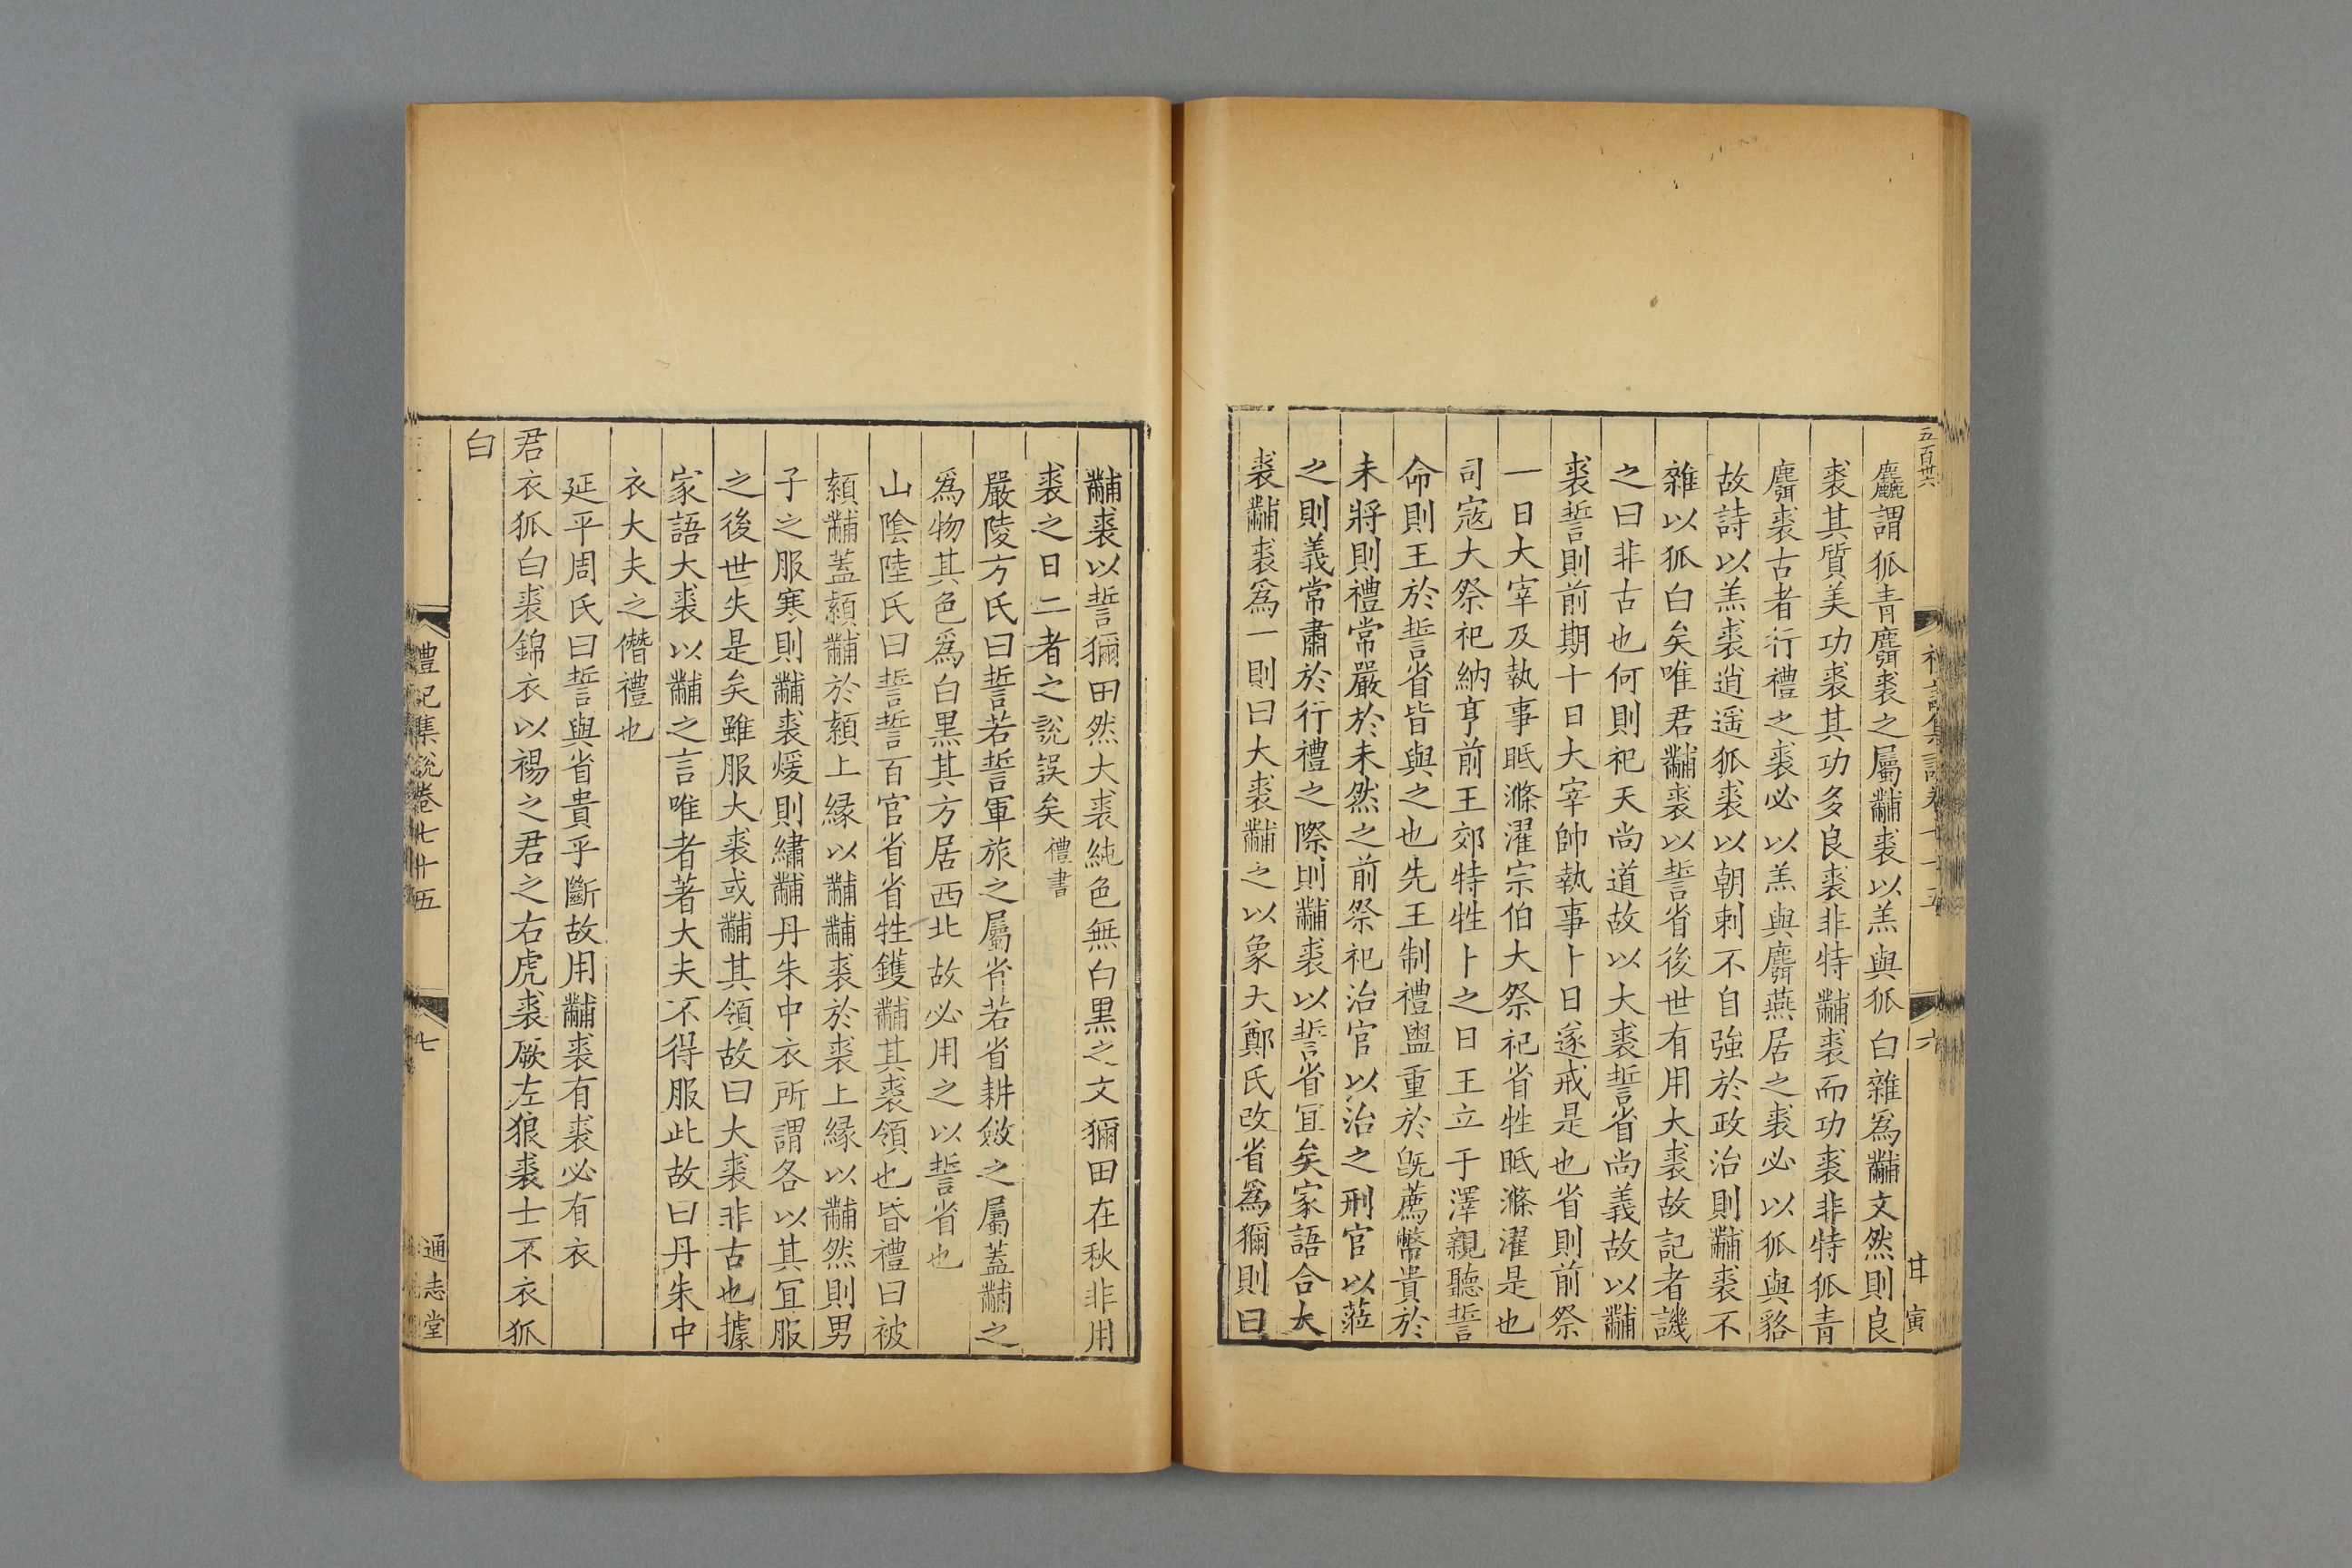 五百卅六
麤謂狐青麛裘之屬黼裘以羔與狐白雜爲黼文然則良
裘其質美功裘其功多良裘非特黼裘而功裘非特狐青
麛裘古者行禮之裘必以羔與麛燕居之裘必以狐與貉
故詩以羔裘逍遥狐裘以朝刺不自強於政治則黼裘不
雜以狐白矣唯君黼裘以誓省後世有用大裘故記者譏
之曰非古也何則祀天尚道故以大裘誓省尚義故以黼
裘誓則前期十日大宰帥執事卜日遂戒是也省則前祭
一日大宰及執事眡滌濯宗伯大祭祀省牲眡滌濯是也
司寇大祭祀納亨前王郊特牲卜之日王立于澤親聽誓
命則王於誓省皆與之也先王制禮盥重於旣薦幣貴於
未將則禮常嚴於未然之前祭祀治官以治之刑官以蒞
之則義常肅於行禮之際則黼裘以誓省冝矣家語合大
裘黼裘爲一則曰大裘黼之以象天鄭氏改省爲獮則曰
六
寅
黼裘以誓獮田然大裘純色無白黒之文獮田在秋非用
裘之日二者之說誤矣 禮書
嚴陵方氏曰誓若誓軍旅之屬省若省耕斂之屬蓋黼之
爲物其色爲白黒其方居西北故必用之以誓省也
山陰陸氏曰誓誓百官省省牲鑊黼其裘領也昏禮曰被
熲黼蓋熲黼於熲上縁以黼黼裘於裘上縁以黼然則男
子之服寒則黼裘煖則繡黼丹朱中衣所謂各以其冝服
之後世失是矣雖服大裘或黼其領故曰大裘非古也據
家語大裘以黼之言唯者著大夫不得服此故曰丹朱中
衣大夫之僭禮也
延平周氏曰誓與省貴乎斷故用黼裘有裘必有衣
君衣狐白裘錦衣以裼之君之右虎裘厥左狼裘士不衣狐
白
禮記集說卷七十五
七
通志堂